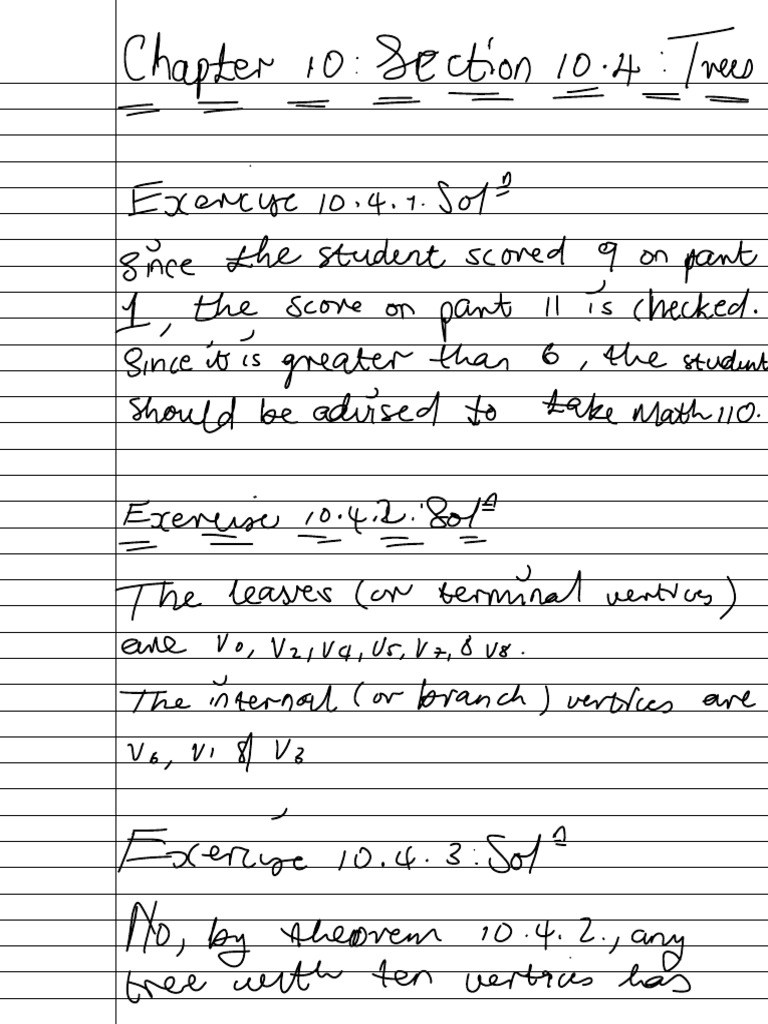 Chapter 10: Section 10.4: Trees
Exercise 10.4.1. Solⁿ
Since the student scored 9 on part
1, the score on part 11 is checked.
Since it is greater than 6, the student
should be advised to take Math 110.
Exercise 10.4.2. Solⁿ
The leaves (or terminal vertices)
are v0, v2, v4, v5, v7, & v8.
The internal (or branch) vertices are
v6, v1 & v3
Exercise 10.4.3: Solⁿ
No, by theorem 10.4.2., any
tree with ten vertices has